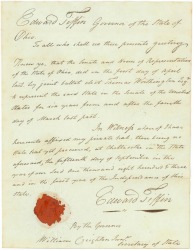 Edward Tiffin Governor of the State of
Ohio
To all who shall see these presents greeting,
Know ye, that the Senate and House of Representatives
of the State of Ohio, did on the first day of April
last by joint ballot elect Thomas Worthington Esqr
to represent the said State in the Senate of the United
States for six years from and after the fourth
day of March last past.
In Witness whereof I have
hereunto affixed my private seal there being no
State seal yet provided, at Chillicothe in the State
aforesaid, the fifteenth day of September in the
year of our Lord one thousand eight hundred &
and in the first year of the Independence of this
State.
Edward Tiffin
By the Governor
William Creighton Junr.
Secretary of State